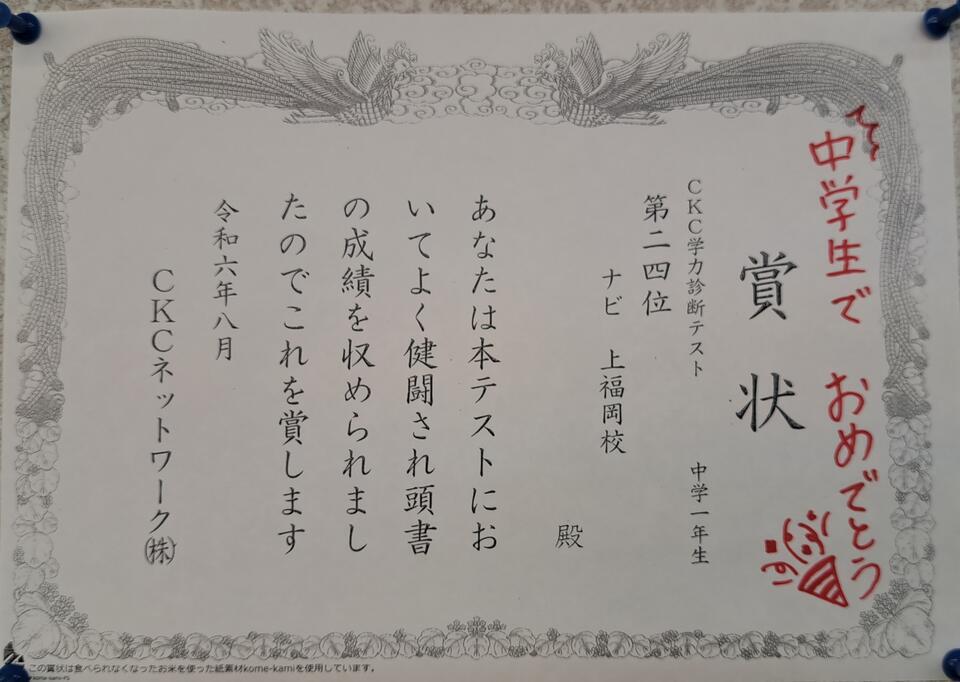 中学生で おめでとう
賞状
CKC学力診断テスト 中学一年生
第二四位
ナビ 上福岡校
殿
あなたは本テストにお
いてよく健闘され頭書
の成績を収められまし
たのでこれを賞します
令和六年八月
CKCネットワーク㈱
この賞状は食べられなくなったお米を使った紙素材kome-kamiを使用しています。